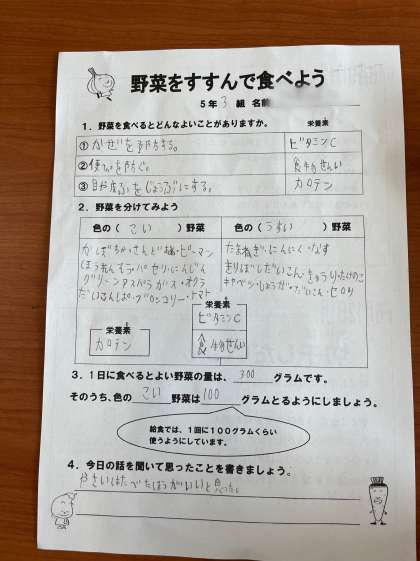 野菜をすすんで食べよう
5年 3 組 名前
1．野菜を食べるとどんなよいことがありますか。 栄養素
① かぜを予防する。 ビタミンC
② 便ぴを防ぐ。 食物せんい
③ 目や皮ふをじょうぶにする。 カロテン
2．野菜を分けてみよう
色の（ こい ）野菜 色の（ うすい ）野菜
かぼちゃ・さんど豆・ピーマン
ほうれんそう・パセリ・にんじん
グリーンアスパラガス・オクラ
ブロッコリー・トマト
たまねぎ・にんにく・なす
きゅうり・たけのこ
キャベツ・しょうが・だいこん・セロリ
栄養素
カロテン
栄養素
ビタミンC
食物せんい
3．1日に食べるとよい野菜の量は、 300 グラムです。
そのうち、色の こい 野菜は 100 グラムとるようにしましょう。
給食では、1回に100グラムくらい
使うようにしています。
4．今日の話を聞いて思ったことを書きましょう。
やさいはたべたほうがいいと思った。